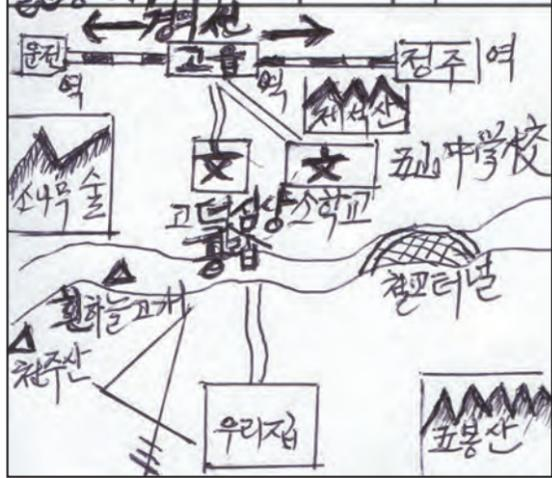 경의선
운전
역
고읍
역
정주 역
제석산
文
文
五山中学校
소나무 술
고덕심양소학교
흰하늘고개
철포터널
천주산
우리집
五봉산